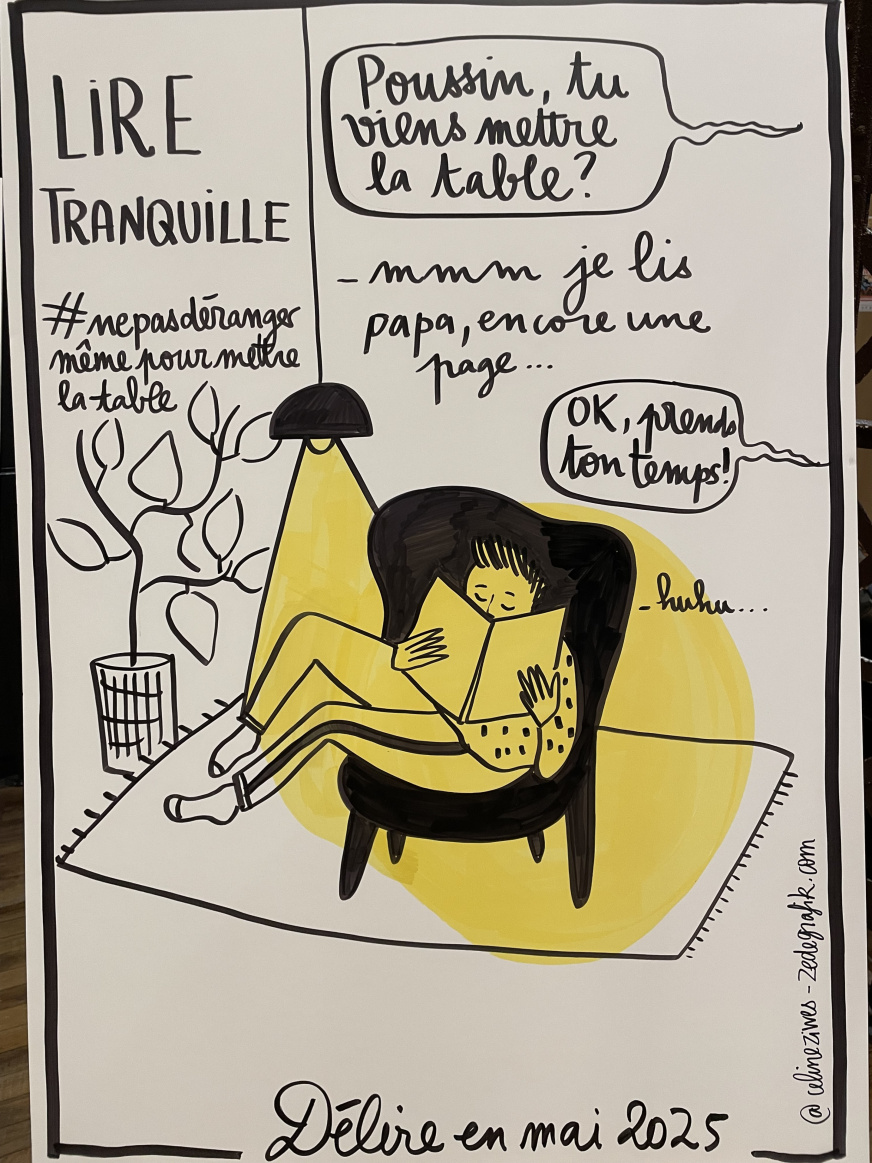 LIRE
TRANQUILLE
#nepasdéranger
même pour mettre
la table
Poussin, tu
viens mettre
la table?
- mmm je lis
papa, encore une
page...
OK, prends
ton temps!
- huhu...
@celineziwes - zedegrafik.com
Délire en mai 2025